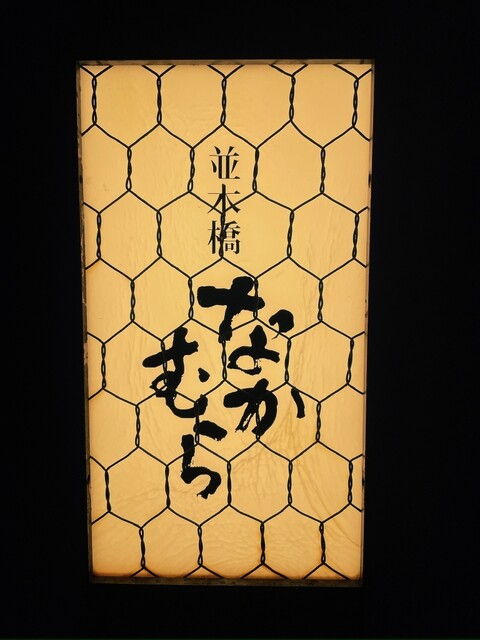 並木橋
なか
むら